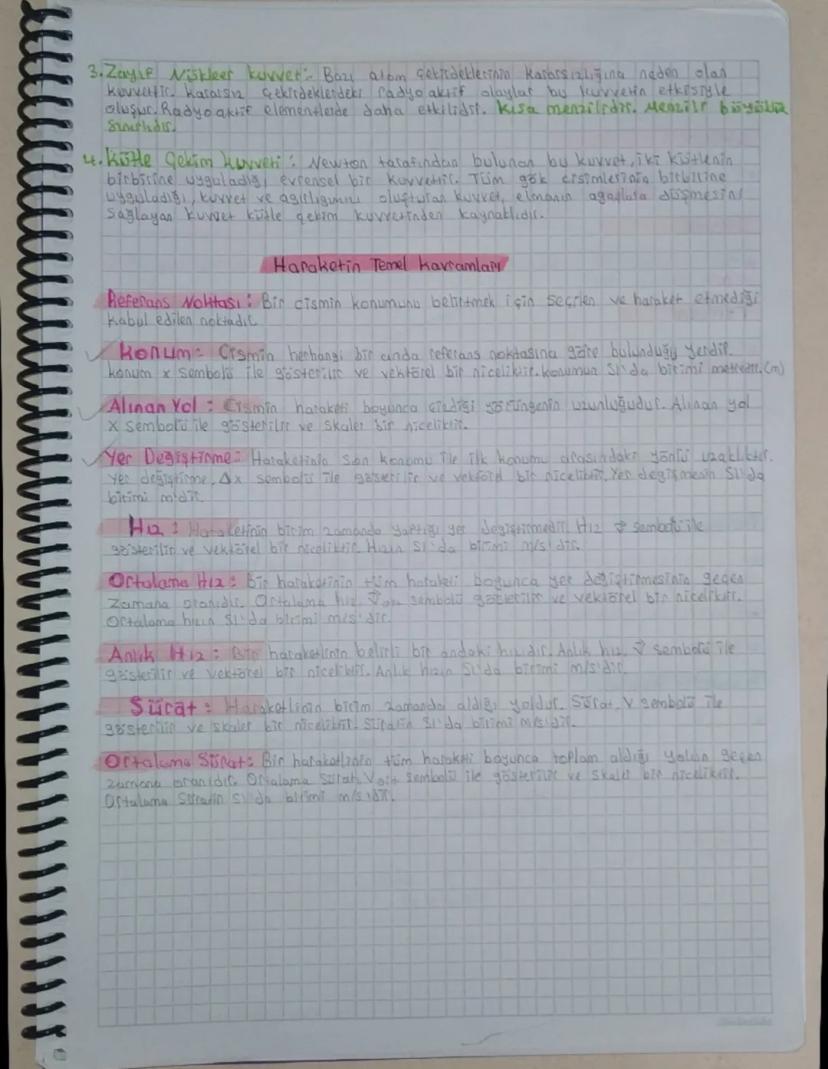 3. Zayıf Nükleer kuvvet:- Bazı atom çekirdeklerinin kararsızlığına neden olan
kuvvettir. kararsız çekirdeklerdeki radyoaktif olaylar bu kuvvetin etkisiyle
oluşur. Radyoaktif elementlerde daha etkilidir. Kısa menzilidir. Menzili
sınırlıdır.
4. Kütle Çekim kuvveti : Newton tarafından bulunan bu kuvvet, iki kütlenin
birbirine uyguladığı, evrensel bir kuvvettir. Tüm gök cisimlerinin birbirine
uyguladığı, kuvvet ve ağırlığımızı oluşturan kuvvet, elmanın düşmesini
sağlayan kuvvet kütle çekim kuvvetinden kaynaklıdır.
Haraketin Temel Kavramları
Referans Noktası : Bir cismin konumunu belirtmek için seçilen ve haraket etmediği
kabul edilen noktadır.
Konum:- Cismin herhangi bir anda referans noktasına göre bulunduğu yerdir.
konum x sembolü ile gösterilir ve vektörel bir niceliktir. konumun SI'da birimi metredir. (m)
Alınan Yol : Cismin haraketi boyunca çizdiği yörüngenin uzunluğudur. Alınan yol
x sembolü ile gösterilir ve skaler bir niceliktir.
Yer Değiştirme: Haraketinin son konumu ile ilk konumu arasındaki yönlü uzaklıktır.
Yer değiştirme, Δx sembolü ile gösterilir ve vektörel bir niceliktir. Yer değişmenin SI'da
birimi m'dir.
Hız : Haraketinin birim zamanda yaptığı yer değiştirmedir. Hız v⃗ sembolü ile
gösterilir ve vektörel bir niceliktir. Hızın SI'da birimi m/s'dir.
Ortalama Hız : Bir haraketinin tüm haraketi boyunca yer değiştirmesinin geçen
zamana oranıdır. Ortalama hız, v⃗ort sembolü gösterilir ve vektörel bir niceliktir.
Ortalama hızın SI'da birimi m/s'dir.
Anlık Hız : Bir haraketlinin belirli bir andaki hızıdır. Anlık hız, v⃗ sembolü ile
gösterilir ve vektörel bir niceliktir. Anlık hızın SI'da birimi m/s'dir.
Sürat : Haraketlinin birim zamanda aldığı yoldur. Sürat, V sembolü ile
gösterilir ve skaler bir niceliktir. Süratin SI'da birimi m/s'dir.
Ortalama Sürat: Bir haraketlinin tüm haraketi boyunca toplam aldığı yolun geçen
zamana oranıdır. Ortalama sürat, Vort sembolü ile gösterilir ve skaler bir niceliktir.
Ortalama Süratin SI'da birimi m/s'dir.